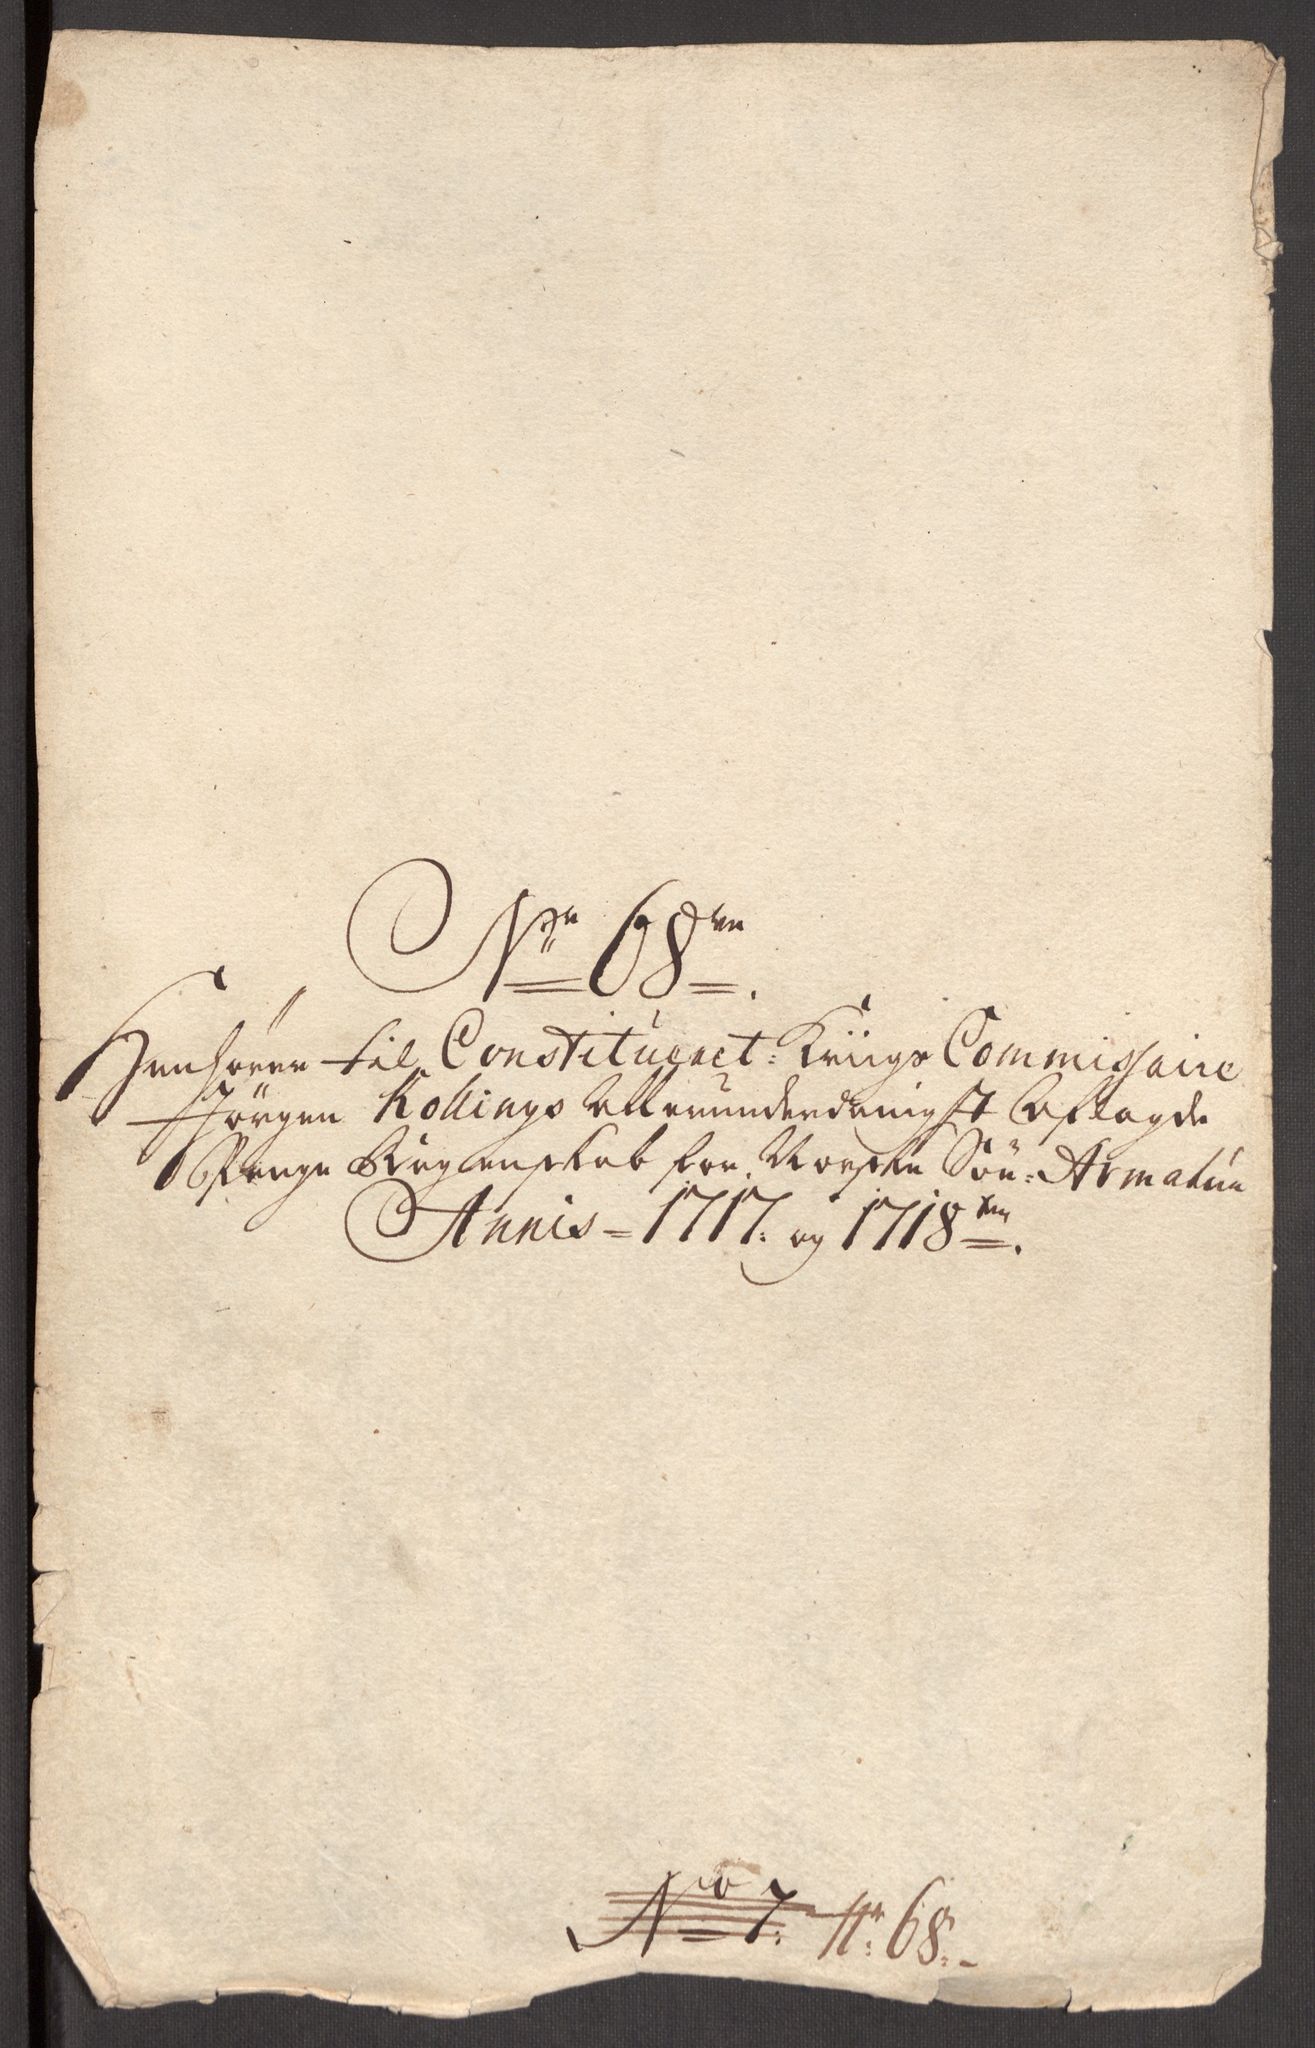 Nr 68
Henhörer til Constitueret: Kriigs Commissaire
Jörgen Kollings allerunderdanigst Aflagde
Penge Regenskab for Norske Söe: Armature
Annis = 1717: og 1718
No 7. Nr: 68:-